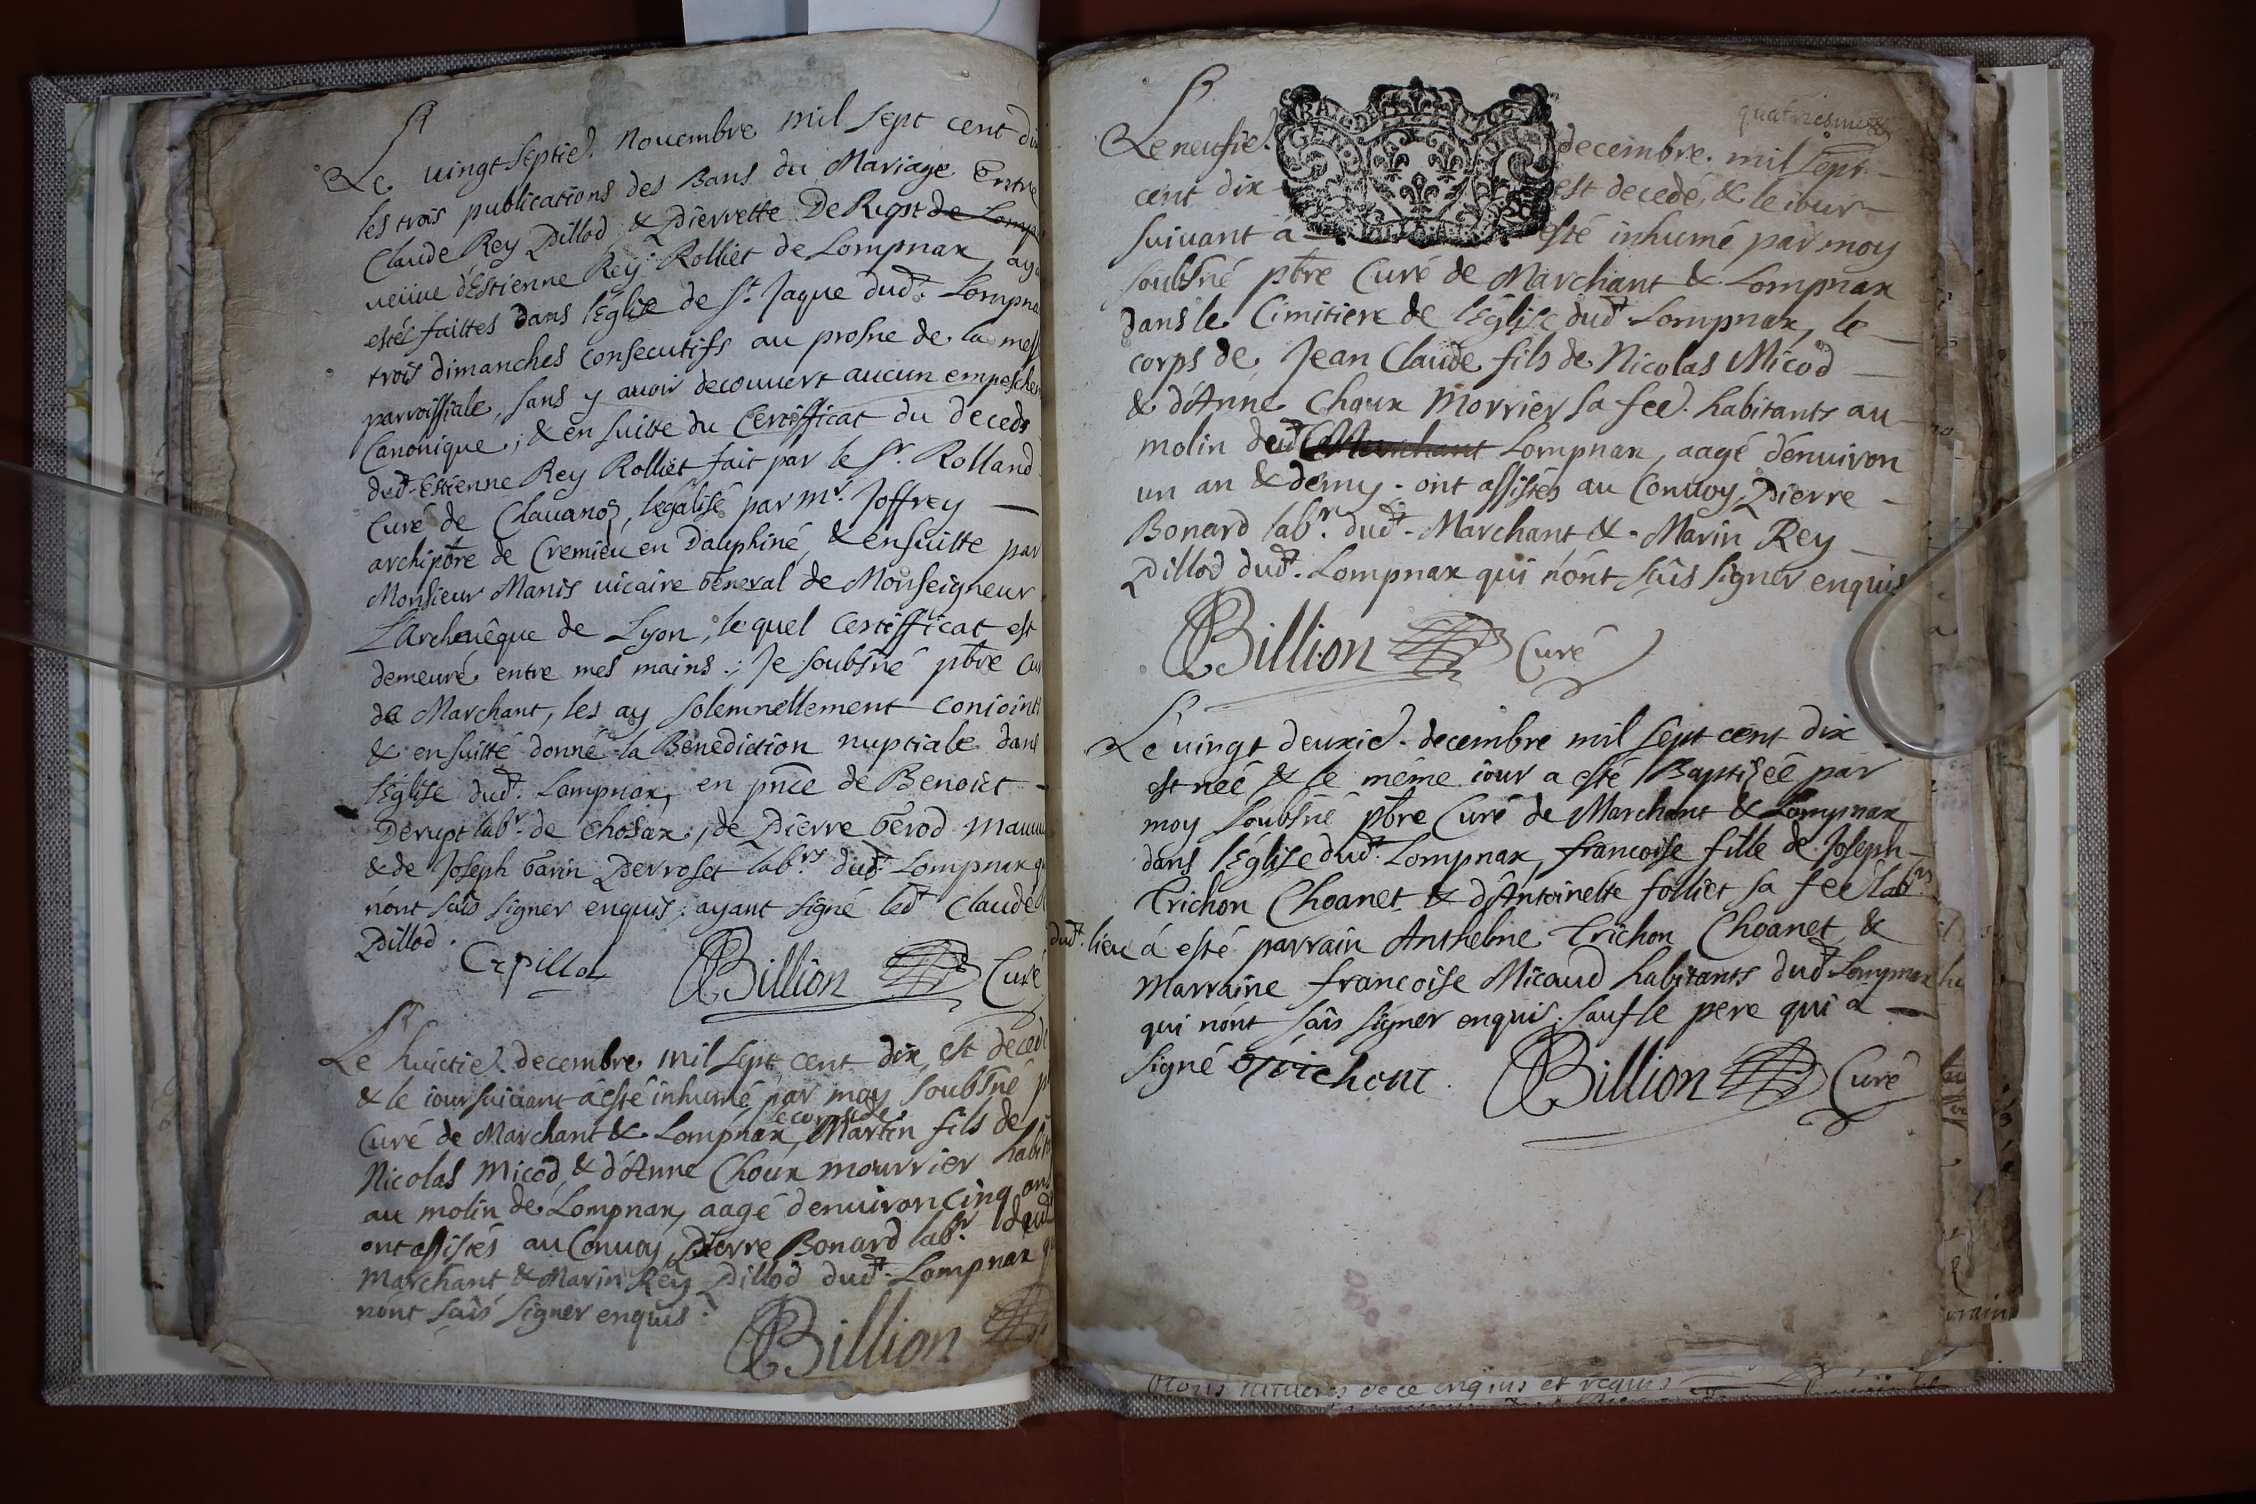 Le vingt septie. novembre mil sept cent dix
les trois publications des Bans du Mariage Entre
Claude Rey Pillod & Pierrette De Rupt de Lomp
veuve d'Estienne Rey Rolliet de Lompnax, aya
esté faittes dans l'Église de St. Jaque dudt. Lompna
trois dimanches consecutifs au prosne de la mess
parroissiale, sans y avoir decouvert aucun empeschem
Canonique; & en suitte du Certifficat du deceds
dudt. Estienne Rey Rolliet fait par le Sr. Rolland
Curé de Chavanoz, legalisé par mr. Joffrey
archiptre de Cremieu en Dauphiné, & ensuitte par
Monsieur Manis vicaire General de Monseigneur
L'Archevêque de Lyon, lequel Certifficat est
demeuré entre mes mains; Je soubsné ptre Cur
de Marchant, les ay solemnellement conioints
& en suitté donné la Benediction nuptiale dans
l'Église dudt. Lompnax, en pnce de Benoict
Derupt labr. de Chosax; de Pierre Gerod
& de Joseph Garin Perroset labrs. dudt. Lompnax q
n'ont sçûs signer enquis; ayant signé ledt Claude
Pillod.
Crpillod Billion Curé
Le huictie. decembre mil sept cent dix, est decedé
& le iour suivant à esté inhumé par moy soubsné p
le corps de
Curé de Marchant & Lompnax, Martin fils de
Nicolas Micod, & d'Anne Choux mourrier habit
au molin de Lompnax, aagé d'environ cinq ans
ont assistés au Convoy Pierre Bonard labr. dudt
Marchant & Marin Rey Pillod dudt. Lompnax q
n'ont sçûs signer enquis.
Billion
quatriesme
GEN
Le neufie. decembre. mil sept
cent dix est decedé, & le iour
suivant à esté inhumé par moy
soubsné ptre Curé de Marchant & Lompnax
dans le Cimitiere de l'Église dudt Lompnax, le
corps de Jean Claude fils de Nicolas Micod
& d'Anne Choux Morrier sa fee. habitants au
molin dudt Marchant Lompnax, aagé d'environ
un an & demy. ont assistés au Convoy Pierre
Bonard labr. dudt. Marchant & Marin Rey
Pillod dudt. Lompnax qui n'ont sçûs signer enquis
Billion Curé
Le vingt deuxie. decembre mil sept cent dix
est née & le même iour a esté Baptizéé par
moy soubsné ptre Curé de Marchant & Lompnax
dans l'Église dudt. Lompnax, francoise fille de Joseph
Trichon Choanet & d'Antoinette folliet sa fee labrs
dudt. lieu à esté parrain Anthelme Trichon Choanet &
Marraine francoise Micaud habitants dudt Lompnax
qui n'ont sçûs signer enquis; sauf le pere qui a
signé J trichont. Billion Curé